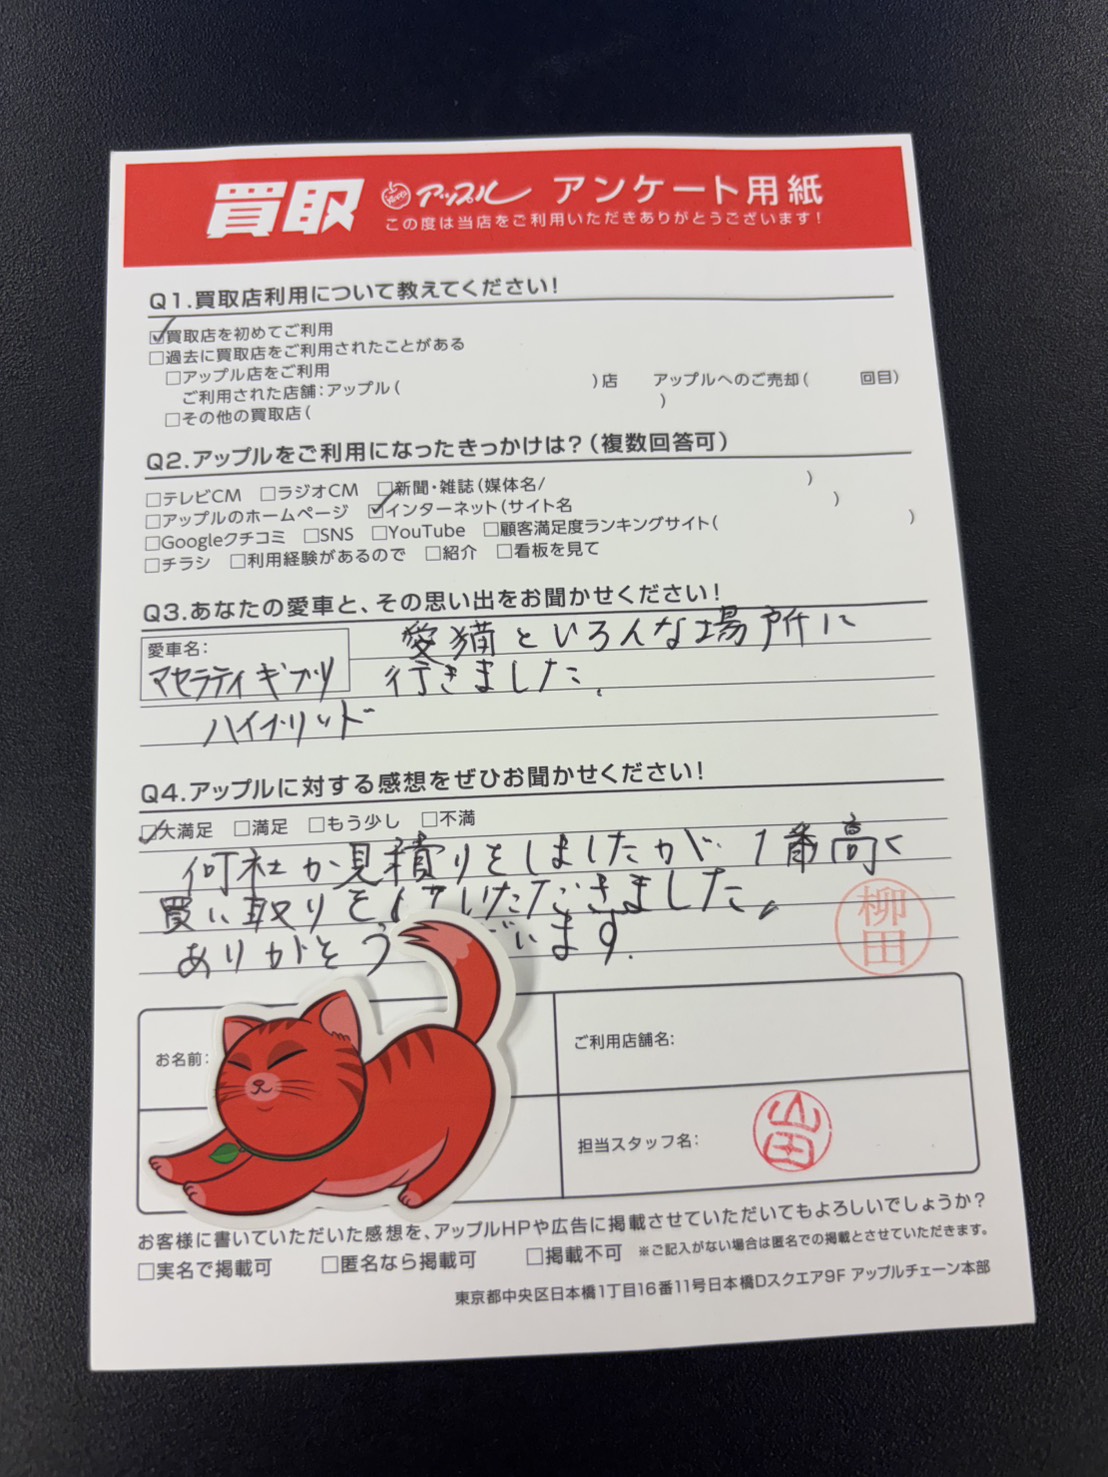 買取 アップル アンケート用紙
この度は当店をご利用いただきありがとうございます！
Q1.買取店利用について教えてください！
☑買取店を初めてご利用
□過去に買取店をご利用されたことがある
□アップル店をご利用
ご利用された店舗：アップル（ ）店 アップルへのご売却（ 回目）
□その他の買取店（ ）
Q2.アップルをご利用になったきっかけは？（複数回答可）
□テレビCM □ラジオCM □新聞・雑誌（媒体名/ ）
□アップルのホームページ ☑インターネット（サイト名 ）
□Googleクチコミ □SNS □YouTube □顧客満足度ランキングサイト（ ）
□チラシ □利用経験があるので □紹介 □看板を見て
Q3.あなたの愛車と、その思い出をお聞かせください！
愛車名：
マセラティギブリ
ハイブリッド
愛猫といろんな場所に
行きました。
Q4.アップルに対する感想をぜひお聞かせください！
☑大満足 □満足 □もう少し □不満
何社か見積りをしましたが、1番高く
買い取りをしていただきました。
ありがとう ざいます.
柳田
お名前：
ご利用店舗名：
担当スタッフ名：
山田
お客様に書いていただいた感想を、アップルHPや広告に掲載させていただいてもよろしいでしょうか？
□実名で掲載可 □匿名なら掲載可 □掲載不可 ※ご記入がない場合は匿名での掲載とさせていただきます。
東京都中央区日本橋1丁目16番11号日本橋Dスクエア9F アップルチェーン本部